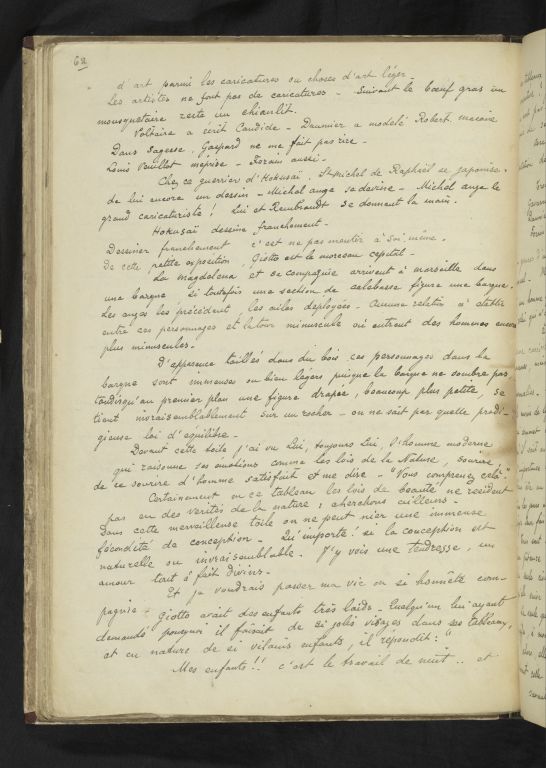 62
d'art parmi les caricatures ou choses d'art léger.
Les artistes ne font pas de caricatures - Suivant le bœuf gras un
mousquetaire reste un chianlit.
Voltaire a écrit Candide - Daumier a modelé Robert. macaire
Dans Sagesse, Gaspard ne me fait pas rire -
Louis Veuillot méprise - Forain aussi -
Chez ce guerrier d'Hokusaï, St Michel de Raphaël se japonise.
de lui encore un dessin - Michel ange se devine - Michel ange le
grand caricaturiste! Lui et Rembrandt se donnent la main.
Hokusaï dessine franchement -
Dessiner franchement c'est ne pas mentir à soi, même.
De cette petite exposition, Giotto est le morceau capital -
La Magdelena et sa compagnie arrivent à marseille dans
une barque si toutefois une section de calebasse figure une barque.
Les anges les précèdent, les ailes déployées - Aucune relation à établir
entre ces personnages et la tour minuscule où entrent des hommes encore
plus minuscules.
D'apparence taillés dans du bois ces personnages dans la
barque sont immenses ou bien légers puisque la barque ne sombre pas
tandisqu'au premier plan une figure drapée, beaucoup plus petite, se
tient invraisemblablement sur un rocher - on ne sait par quelle prodi-
gieuse loi d'équilibre -
Devant cette toile j'ai vu Lui, toujours Lui, l'homme moderne
qui raisonne ses émotions comme les lois de la Nature, sourire
de ce sourire d'homme satisfait et me dire - "Vous comprenez celà?"
Certainement en ce tableau les lois de beauté ne resident
pas en des verités de la nature; cherchons ailleurs -
Dans cette merveilleuse toile on ne peut nier une immense
fécondité de conception - Qu'importe! si la conception est
naturelle ou invraisemblable. J'y vois une tendresse, un
amour tout à fait divins -
Et je voudrais passer ma vie en si honnête com-
pagnie. Giotto avait des enfants très laids - Quelqu'un lui ayant
demandé pourquoi il faisait de si jolis visages dans ses tableaux,
et en nature de si vilains enfants, il repondit: "
Mes enfants!! c'est le travail de nuit.. et